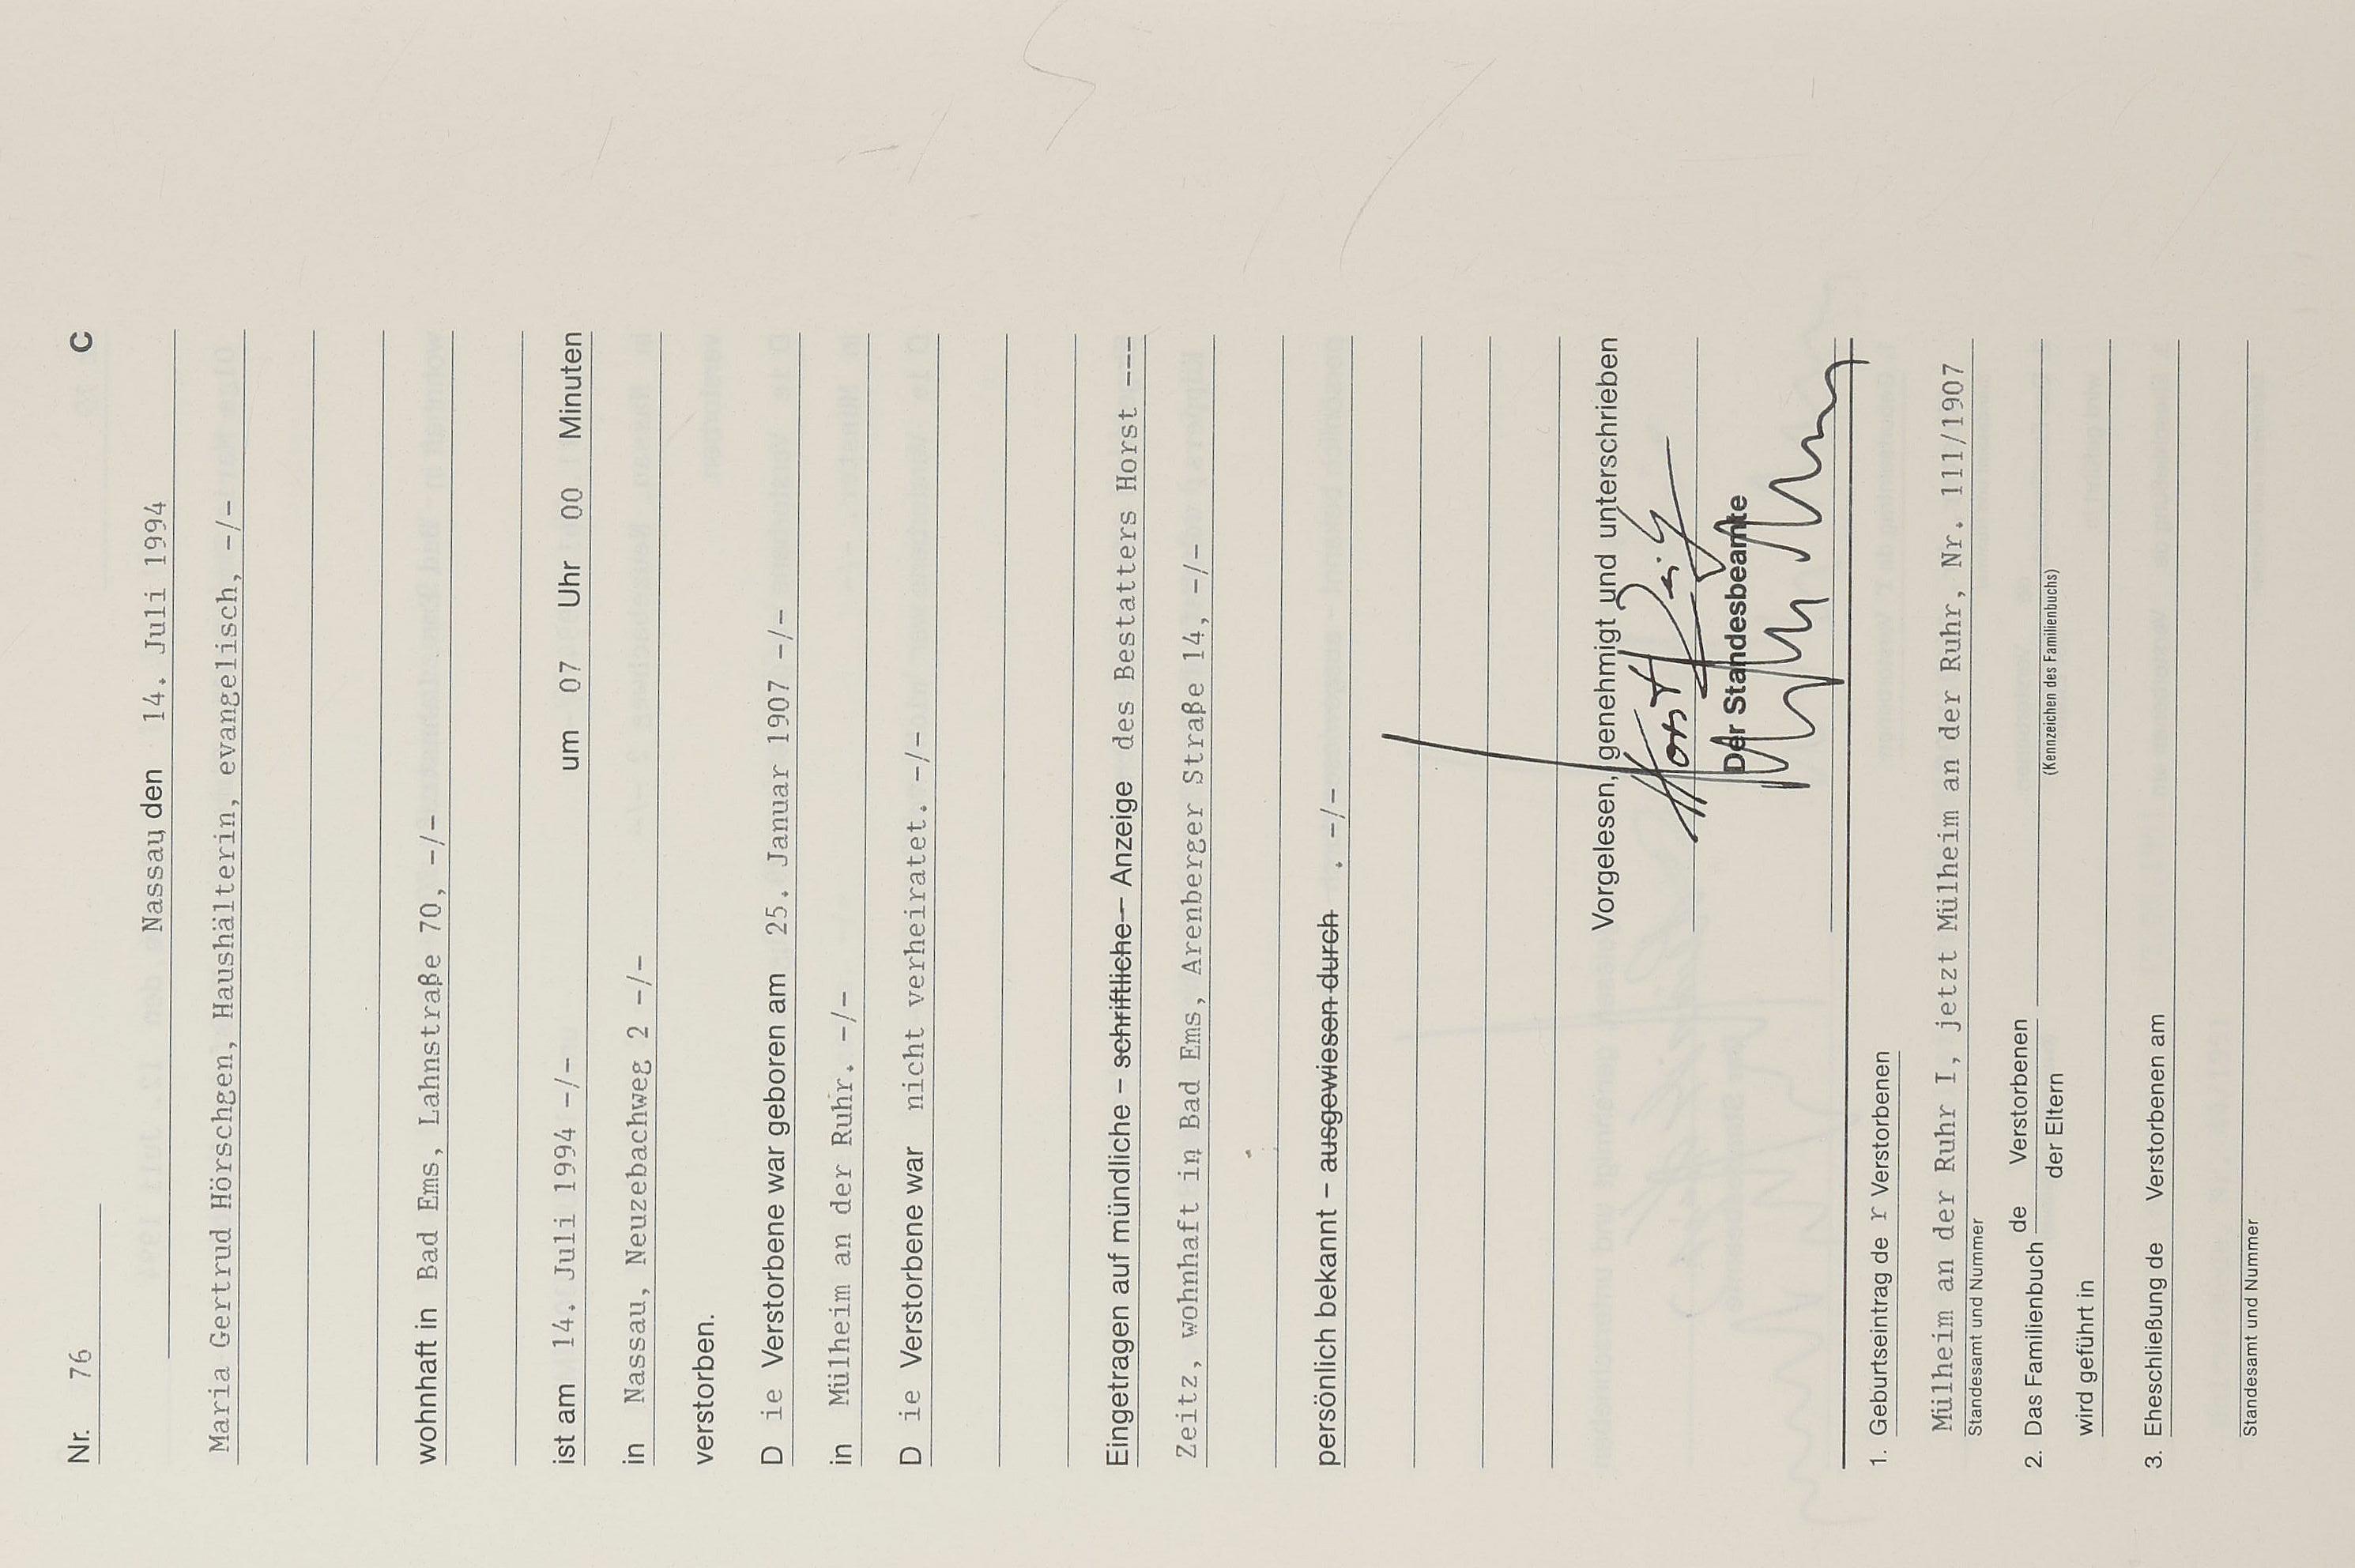 Nr. 76 C
Nassau, den 14. Juli 1994
Maria Gertrud Hörschgen, Haushälterin, evangelisch, -/-
wohnhaft in Bad Ems, Lahnstraße 70, -/-
ist am 14. Juli 1994 -/- um 07 Uhr 00 Minuten
in Nassau, Neuzebachweg 2 -/-
verstorben.
D ie Verstorbene war geboren am 25. Januar 1907 -/-
in Mülheim an der Ruhr. -/-
D ie Verstorbene war nicht verheiratet. -/-
Eingetragen auf mündliche – schriftliche – Anzeige des Bestatters Horst ---
Zeitz, wohnhaft in Bad Ems, Arenberger Straße 14, -/-
persönlich bekannt – ausgewiesen durch . -/-
Vorgelesen, genehmigt und unterschrieben
Horst Zeitz
Der Standesbeamte
1. Geburtseintrag de r Verstorbenen
Mülheim an der Ruhr I, jetzt Mülheim an der Ruhr, Nr. 111/1907
Standesamt und Nummer
2. Das Familienbuch de Verstorbenen
der Eltern
(Kennzeichen des Familienbuchs)
wird geführt in
3. Eheschließung de Verstorbenen am
Standesamt und Nummer